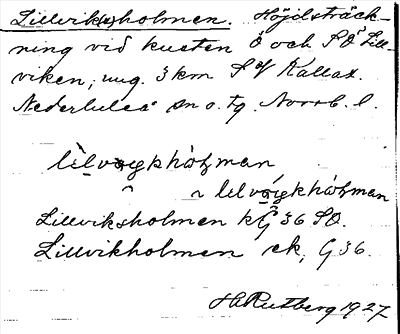 Lillvik(s)holmen. Höjdsträck-
ning vid kusten Ö och SÖ Lill-
viken, ung. 3 km SV Kallax.
Nederluleå sn o. tg. Norrb. l.
Lillviksholmen kG 36 SO.
Lillvikholmen ek, G 36.
HARutberg 1927